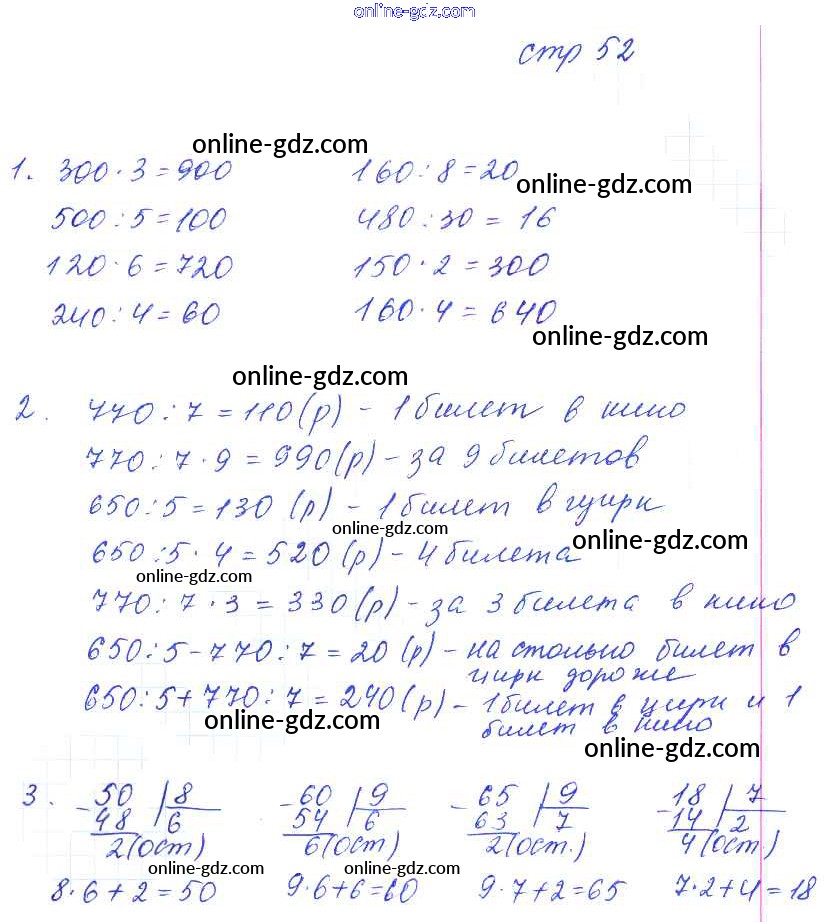 online-gdz.com
стр 52
online-gdz.com
1. 300·3=900 160:8=20
online-gdz.com
500:5=100 480:30=16
120·6=720 150·2=300
240:4=60 160·4=640
online-gdz.com
online-gdz.com
2. 770:7=110(р)-1билет в кино
770:7·9=990(р)-за 9билетов
650:5=130(р)-1билет в цирк
online-gdz.com
650:5·4=520(р)-4билета
online-gdz.com
online-gdz.com
770:7·3=330(р)-за 3билета в кино
650:5-770:7=20(р)-на столько билет в
цирк дороже
650:5+770:7=240(р)-1билет в цирк и 1
билет в кино
online-gdz.com
online-gdz.com
3. -50 |8 -60 |9 -65 |9 -18 |7
48 6 54 6 63 7 14 2
2(ост) 6(ост) 2(ост.) 4(ост.)
online-gdz.com online-gdz.com
8·6+2=50 9·6+6=60 9·7+2=65 7·2+4=18